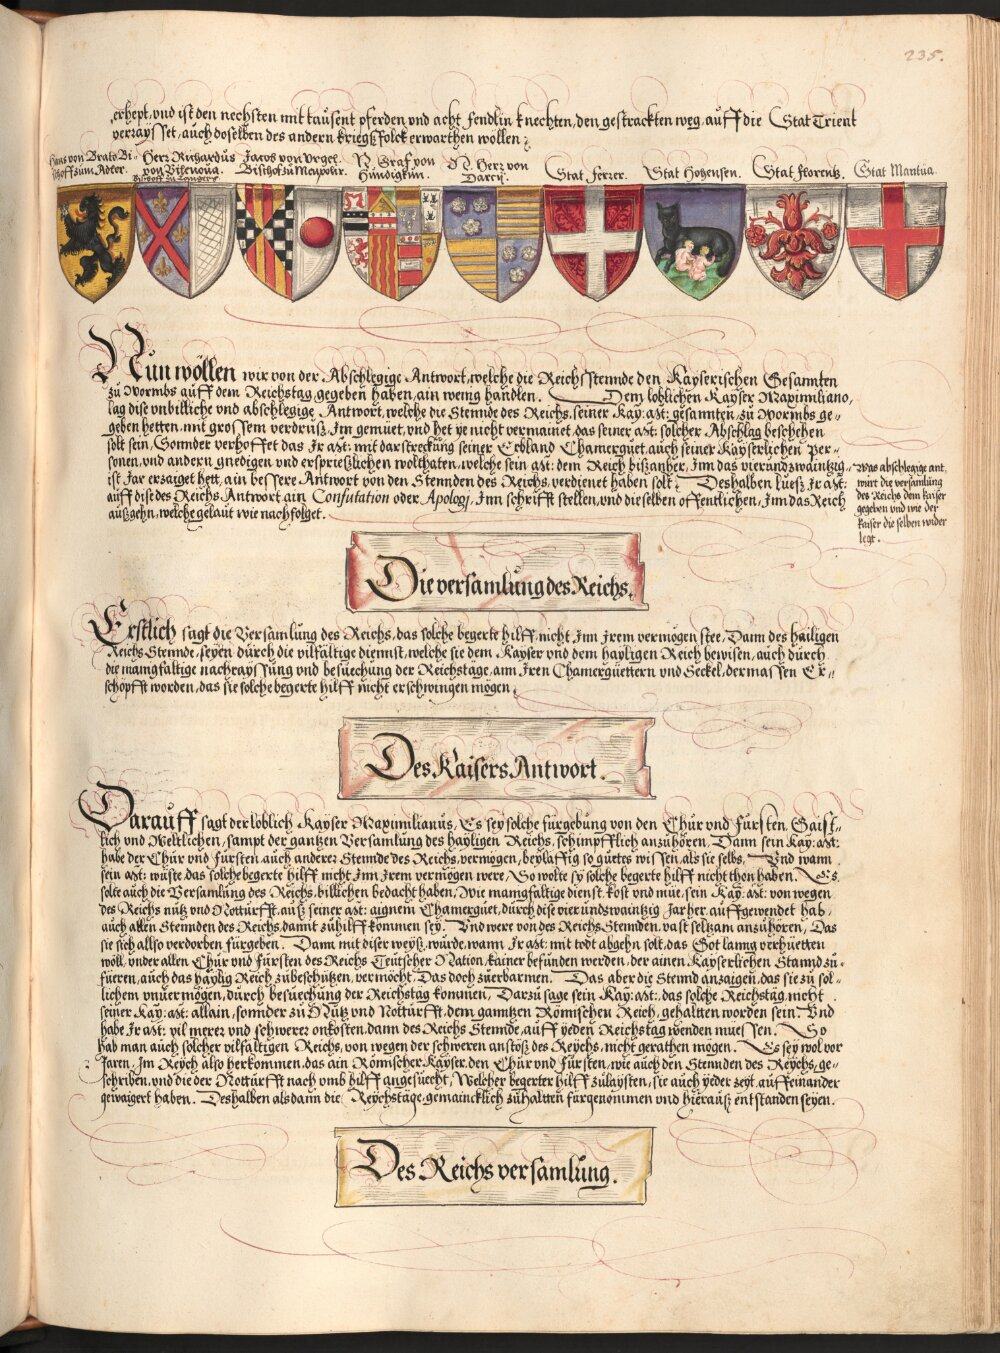 235.
erhept, vnd ist den nechsten mit tausent pferden vnd acht fendlin knechten, den gestrackten weg, auff die Stat Trient
verrayßet, auch doselben des andern kriegsfolck erwarthen wöllen
Hans von Prato Bi-
schoff zum Adler.
Herz Richardus
von Vilenoua.
Bischoff zu
Jacos von Vrgel.
Bischof zu Mayolir.
N. Graf von
Hündigkun.
N. Herz von
Darcy.
Stat Ferrer.
Stat Hohensen.
Stat Florentz.
Stat Mantua.
Nun wöllen wir von der Abschlegige Antwort, welche die Reichs Stennde den Kayserischen Gesannten
zu Wormbs auff dem Reichstag gegeben haben, ain wenig handlen. Dem loblichen Kayser Maximiliano,
lag dise vnbilliche vnd abschlegige Antwort, welche die Stennde des Reichs, seiner Kay: Mt: gesannten, zu Wormbs ge-
geben hetten, mit grossem verdruß, Im gemüet, vnd het ye nicht vermainet das seiner Mt: solcher Abschlag beschehen
solt sein, Sonnder verhoffet das Ir Mt: mit darstreckung seiner Erbland Chamerguet, auch seiner Kayserlichen Per-
sonen, vnd andern gnedigen vnd ersprießlichen wolthaten, welche sein Mt: dem Reich bißanher, Inn das vierundzwaintzig-
ist Jar erzaiget hett, ain bessere Antwort von den Stennden des Reichs, verdienet haben solt. Deshalben lueß Ir Mt:
auff dise des Reichs Antwort, ain Confutation oder Apologi, Inn schrifft stellen, vnd dieselben offentlichen, Inn das Reich
außgehn, welche gelaut wie nachfolget.
Was abschlegige ant
wurt die versamlung
des Reichs dem Kaiser
gegeben vnd wie der
Kaiser die selben wider
legt.
Die versamlung des Reichs.
Erstlich sagt die Versamlung des Reichs, das solche begerte hilff, nicht Inn Irem vermögen stee, Dann des hailigen
Reichs Stennde, seyen durch die vilfaltige diennst, welche sie dem Kayser vnd dem hayligen Reich bewisen, auch durch
die manigfaltige nachrayssung vnd besuechung der Reichstäge, ann Iren Chamerguettern vnd Seckel, dermassen Er-
schöpfft worden, das sie solche begerte hilff nicht erschwingen mögen.
Des Kaisers Antwort.
Darauff sagt der loblich Kayser Maximilianus, Es sey solche fürgebung von den Chur vnd Fürsten, Gaist-
lich vnd Weltlichen, sampt der gantzen Versamlung des hayligen Reichs, schimpfflich anzuhören, Dann sein Kay: Mt:
habe der Chur vnd Fürsten auch anderer Stennde des Reichs, vermögen, beyläffig so guetes wissen, als sie selbs. Vnd wann
sein Mt: wüste, das solche begerte hilff nicht Inn Irem vermögen were, So wolte sy solche begerte hilff nicht thon haben. Es
solte auch die Versamlung des Reichs billichen bedacht haben, Wie manigfaltige dienst, kost vnd müe, sein Kay: Mt: von wegen
des Reichs nutz vnd Notturfft, auß seiner Mt: aignem Chamerguet, durch dise vier vndzwaintzig Jar her, auffgewendet hab,
auch allen Stennden des Reichs, damit zu hilff kommen sey. Vnd were von des Reichs Stennden, vast seltzam anzuhören, Das
sie sich allso verdorben fürgeben. Dann mit diser weyß, würde, wann Ir Mt: mit todt abgehn solt, das Got lanng verhüetten
wöll, vnder allen Chur vnd fürsten des Reichs Teütscher Nation, kainer befunden werden, der ainen Kayserlichen Stannd zu-
füeren, auch das haylig Reich zubeschützen, vermöcht, Das doch zuerbarmen. Das aber die Stennd anzaigen, das sie zu sol-
lichem vnuermögen, durch besuechung der Reichstäg kommen, Darzu sage sein Kay: Mt: das solche Reichstäg nicht
seiner Kay: Mt: allain, sonnder zu Nutz vnd Notturfft, dem ganntzen Römischen Reich, gehaltten worden sein. Vnd
habe Ir Mt: vil merer vnd schwerer onkosten, dann des Reichs Stennde, auff yeden Reichstag wenden muessen. So
hab man auch solcher vilfaltigen Reichs, von wegen der schweren anstöß des Reychs, nicht gerathen mögen. Es sey wol vor
Jaren, Im Reych also herkommen, das ain Römischer Kayser, den Chur vnd Fürsten, wie auch den Stennden des Reychs, ge-
schriben, vnd die der Notturfft nach vmb hilff angesuecht, Welcher begerter hilff zulaysten, sie auch yeder zeyt, auff einander
gewaigert haben. Deshalben alsdann die Reychstäge, gemaincklich zuhaltten fürgenommen vnd hierauß entstanden seyen.
Des Reichs versamlung.